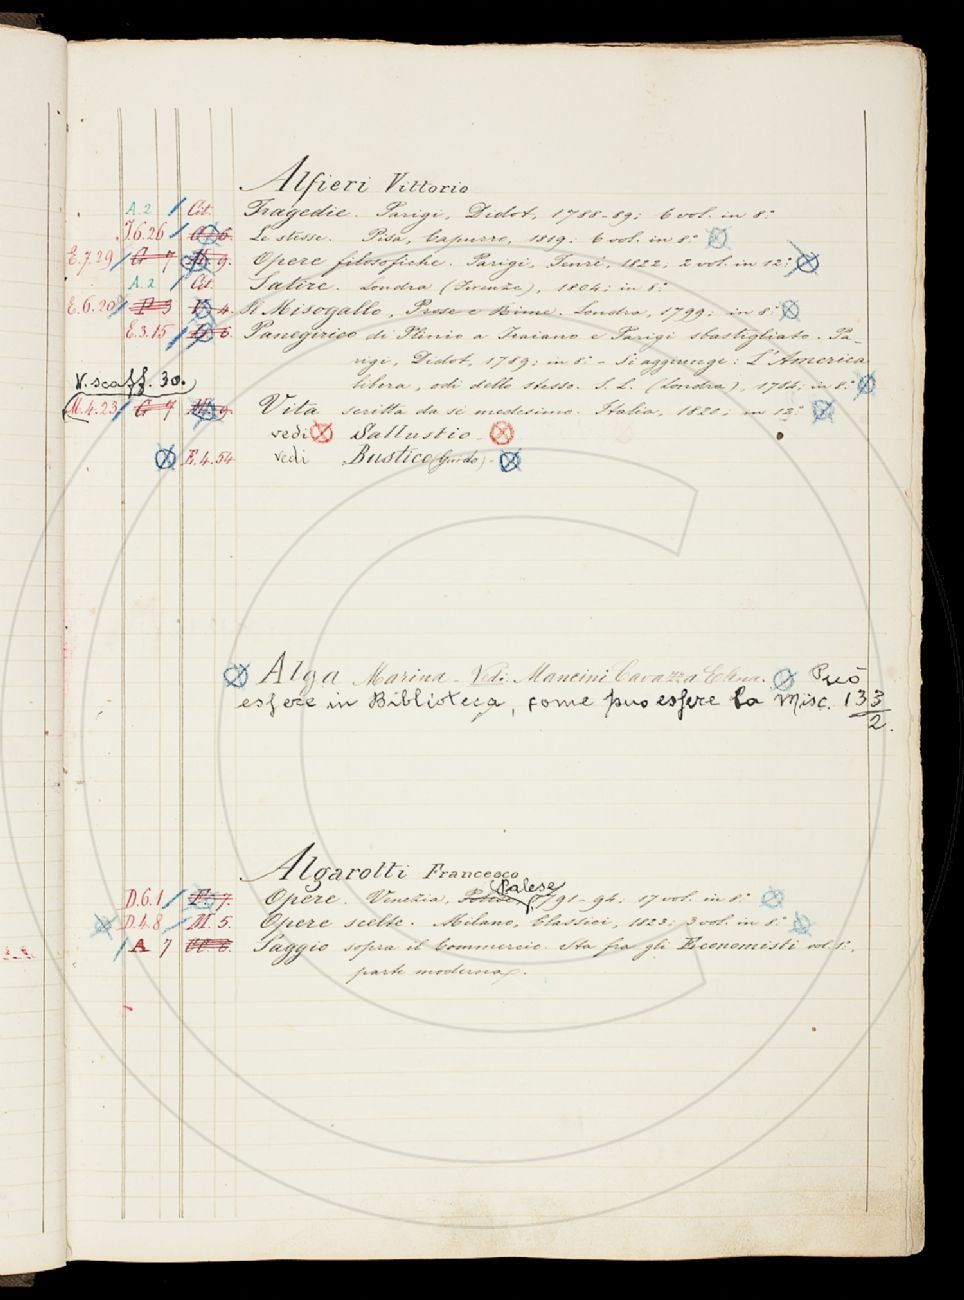 Alfieri Vittorio
A.2 / Cit. Tragedie. Parigi, Didot, 1788-89; 6 vol. in 8.°
J.6.26 / 6. Le stesse. Pisa, Capurro, 1819; 6 vol. in 8.°
E.7.29 / G 7 9. Opere filosofiche. Parigi, 1822, 2 vol. in 12.°
A.2 / Cit. Satire. Londra (Firenze), 1804; in 8.°
E.6.20 / P 3 4. Il Misogallo, Prose e Rime. Londra, 1799; in 8.°
E.3.15 / 6. Panegirico di Plinio a Traiano e Parigi sbastigliato. Pa-
rigi, Didot, 1789; in 8.° - Si aggiunge: L'America
libera, odi dello stesso. S. L. (Londra), 1784; in 8.°
V. scaff. 30.
M.4.23 / G 7 9. Vita scritta da sè medesimo. Italia, 1820; in 12.°
vedi Sallustio -
E.4.54 vedi Bustico (Guido) -
Alga Marina - Vedi: Mancini Cavazza Elena. Può
essere in Biblioteca, come può essere la Misc. 133
2.
Algarotti Francesco
Palese
D.6.1 / F. 7. Opere. Venezia, 1791-94; 17 vol. in 8.°
D.4.8 / M. 5. Opere scelte. Milano, Classici, 1823; 3 vol. in 8.°
/ A 7 Saggio sopra il Commercio. Sta fra gli Economisti vol. 1.°,
parte moderna.